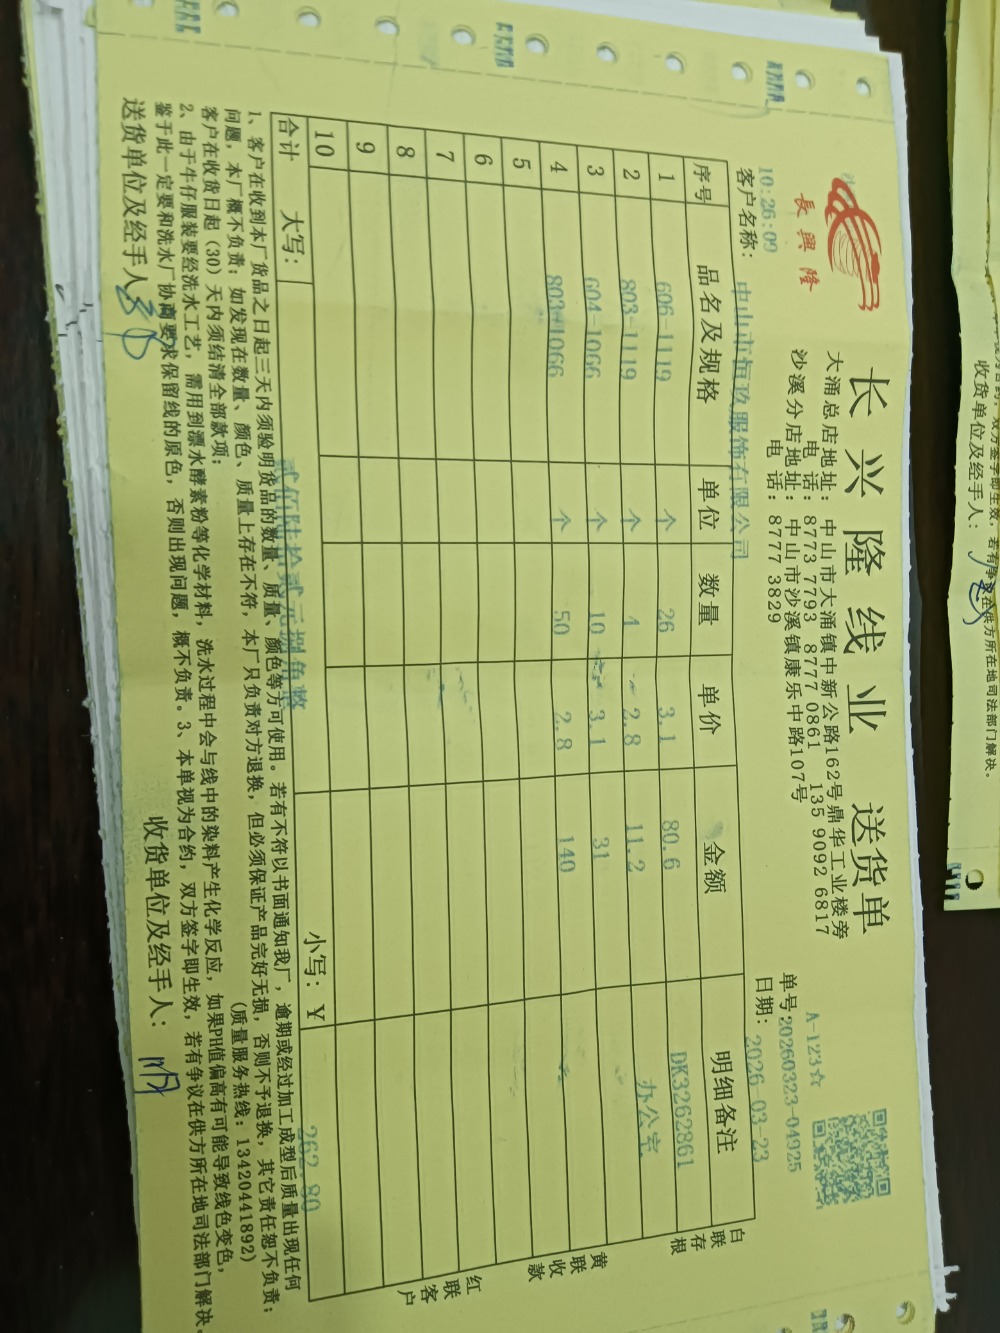 長興隆
长兴隆线业 送货单
大涌总店地址：中山市大涌镇中新公路162号鼎华工业楼旁
电 话：8773 7793 8777 0861 135 9092 6817
沙溪分店地址：中山市沙溪镇康乐中路107号
电 话：8777 3829
A-123☆
单号:20260323-04925
日期：2026-03-23
10:26:09
客户名称：中山市恒玖服饰有限公司
序号 品名及规格 单位 数量 单价 金额 明细备注
1 606-1119 个 26 3.1 80.6 DK3262861
2 803-1119 个 4 2.8 11.2 办公室
3 604-1066 个 10 3.1 31
4 803-1066 个 50 2.8 140
5
6
7
8
9
10
合计 大写：贰佰陆拾贰元捌角整 小写：Y 262.80
1、客户在收到本厂货品之日起三天内须验明货品的数量、质量、颜色等方可使用。若有不符以书面通知我厂，逾期或经过加工成型后质量出现任何
问题，本厂概不负责；如发现在数量、颜色、质量上存在不符，本厂只负责对方退换，但必须保证产品完好无损，否则不予退换，其它责任恕不负责；
客户在收货日起（30）天内须结清全部款项； （质量服务热线：13420441892）
2、由于牛仔服装要经洗水工艺，需用到漂水酵素粉等化学材料，洗水过程中会与线中的染料产生化学反应，如果PH值偏高有可能导致线色变色，
鉴于此一定要和洗水厂协商要求保留线的原色，否则出现问题，概不负责。3、本单视为合约，双方签字即生效，若有争议在供方所在地司法部门解决。
送货单位及经手人： 收货单位及经手人：
白联存根
黄联收款
红联客户
双方签字即生效，若有争议在供方所在地司法部门解决。
收货单位及经手人：